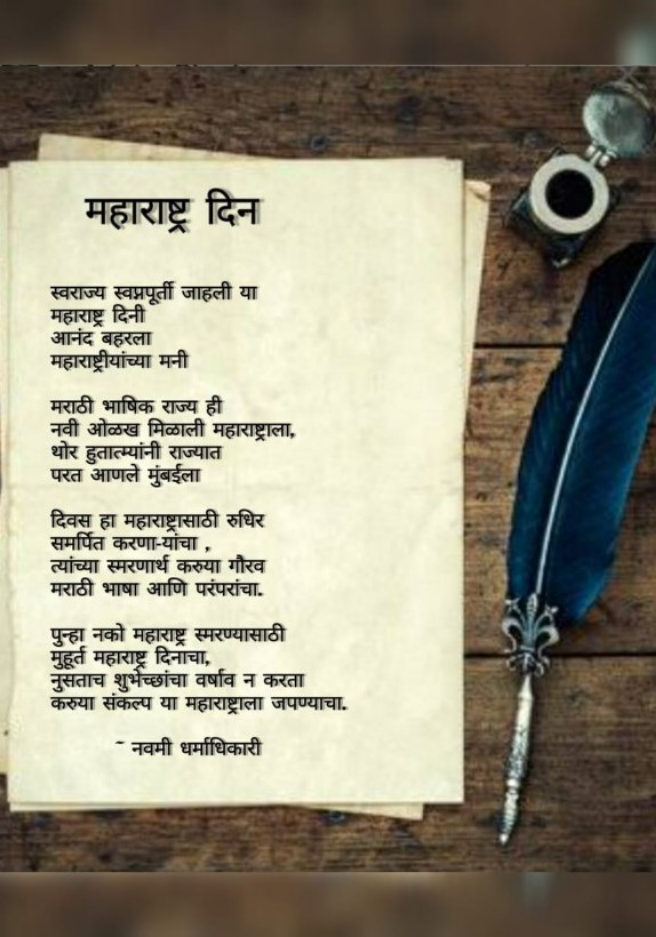 महाराष्ट्र दिन
स्वराज्य स्वप्नपूर्ती जाहली या
महाराष्ट्र दिनी
आनंद बहरला
महाराष्ट्रीयांच्या मनी
मराठी भाषिक राज्य ही
नवी ओळख मिळाली महाराष्ट्राला,
थोर हुतात्म्यांनी राज्यात
परत आणले मुंबईला
दिवस हा महाराष्ट्रासाठी रुधिर
समर्पित करणा-यांचा ,
त्यांच्या स्मरणार्थ करुया गौरव
मराठी भाषा आणि परंपरांचा.
पुन्हा नको महाराष्ट्र स्मरण्यासाठी
मुहूर्त महाराष्ट्र दिनाचा,
नुसताच शुभेच्छांचा वर्षाव न करता
करुया संकल्प या महाराष्ट्राला जपण्याचा.
~ नवमी धर्माधिकारी